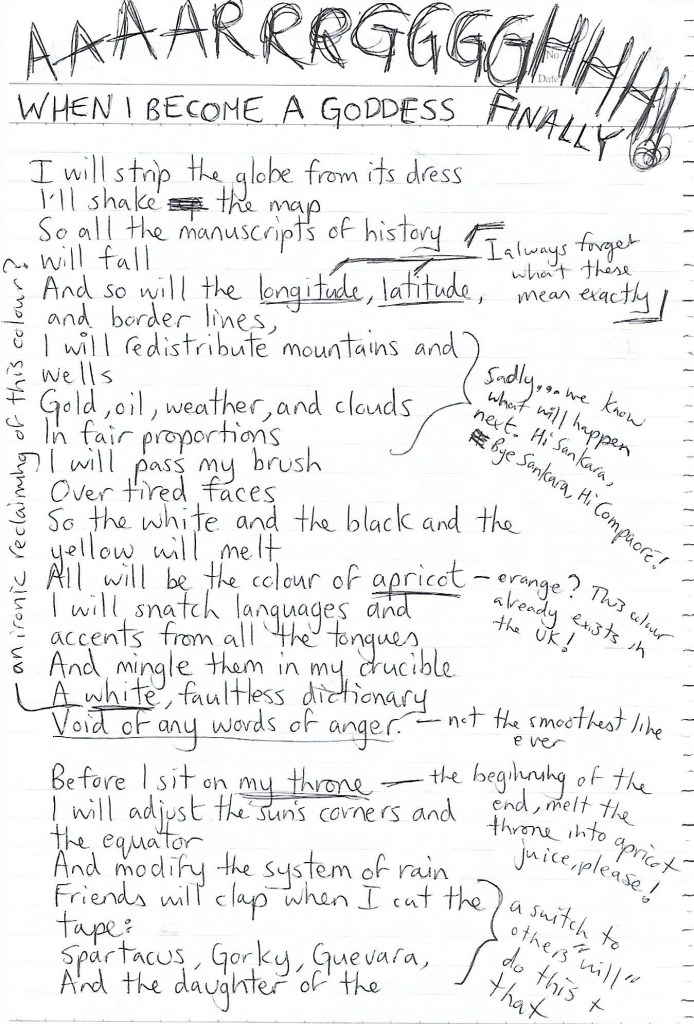 AAAARRRRGGGGHHHH!!
No
Date
WHEN I BECOME A GODDESS FINALLY
I will strip the globe from its dress
I'll shake the map
So all the manuscripts of history
will fall
I always forget
what these
mean exactly
And so will the longitude, latitude,
and border lines,
I will redistribute mountains and
wells
Gold, oil, weather, and clouds
In fair proportions
Sadly... we know
what will happen
next. Hi Sankara,
Bye Sankara, Hi Compaoré!
I will pass my brush
Over tired faces
So the white and the black and the
yellow will melt
All will be the colour of apricot – orange? This colour
already exists in
the UK!
I will snatch languages and
accents from all the tongues
And mingle them in my crucible
A white, faultless dictionary
an ironic reclaiming of this colour?
Void of any words of anger. – not the smoothest line
ever
Before I sit on my throne — the beginning of the
end, melt the
throne into apricot
juice, please!
I will adjust the sun's corners and
the equator
And modify the system of rain
Friends will clap when I cut the
tape:
Spartacus, Gorky, Guevara,
And the daughter of the
a switch to
others "will"
do this +
that